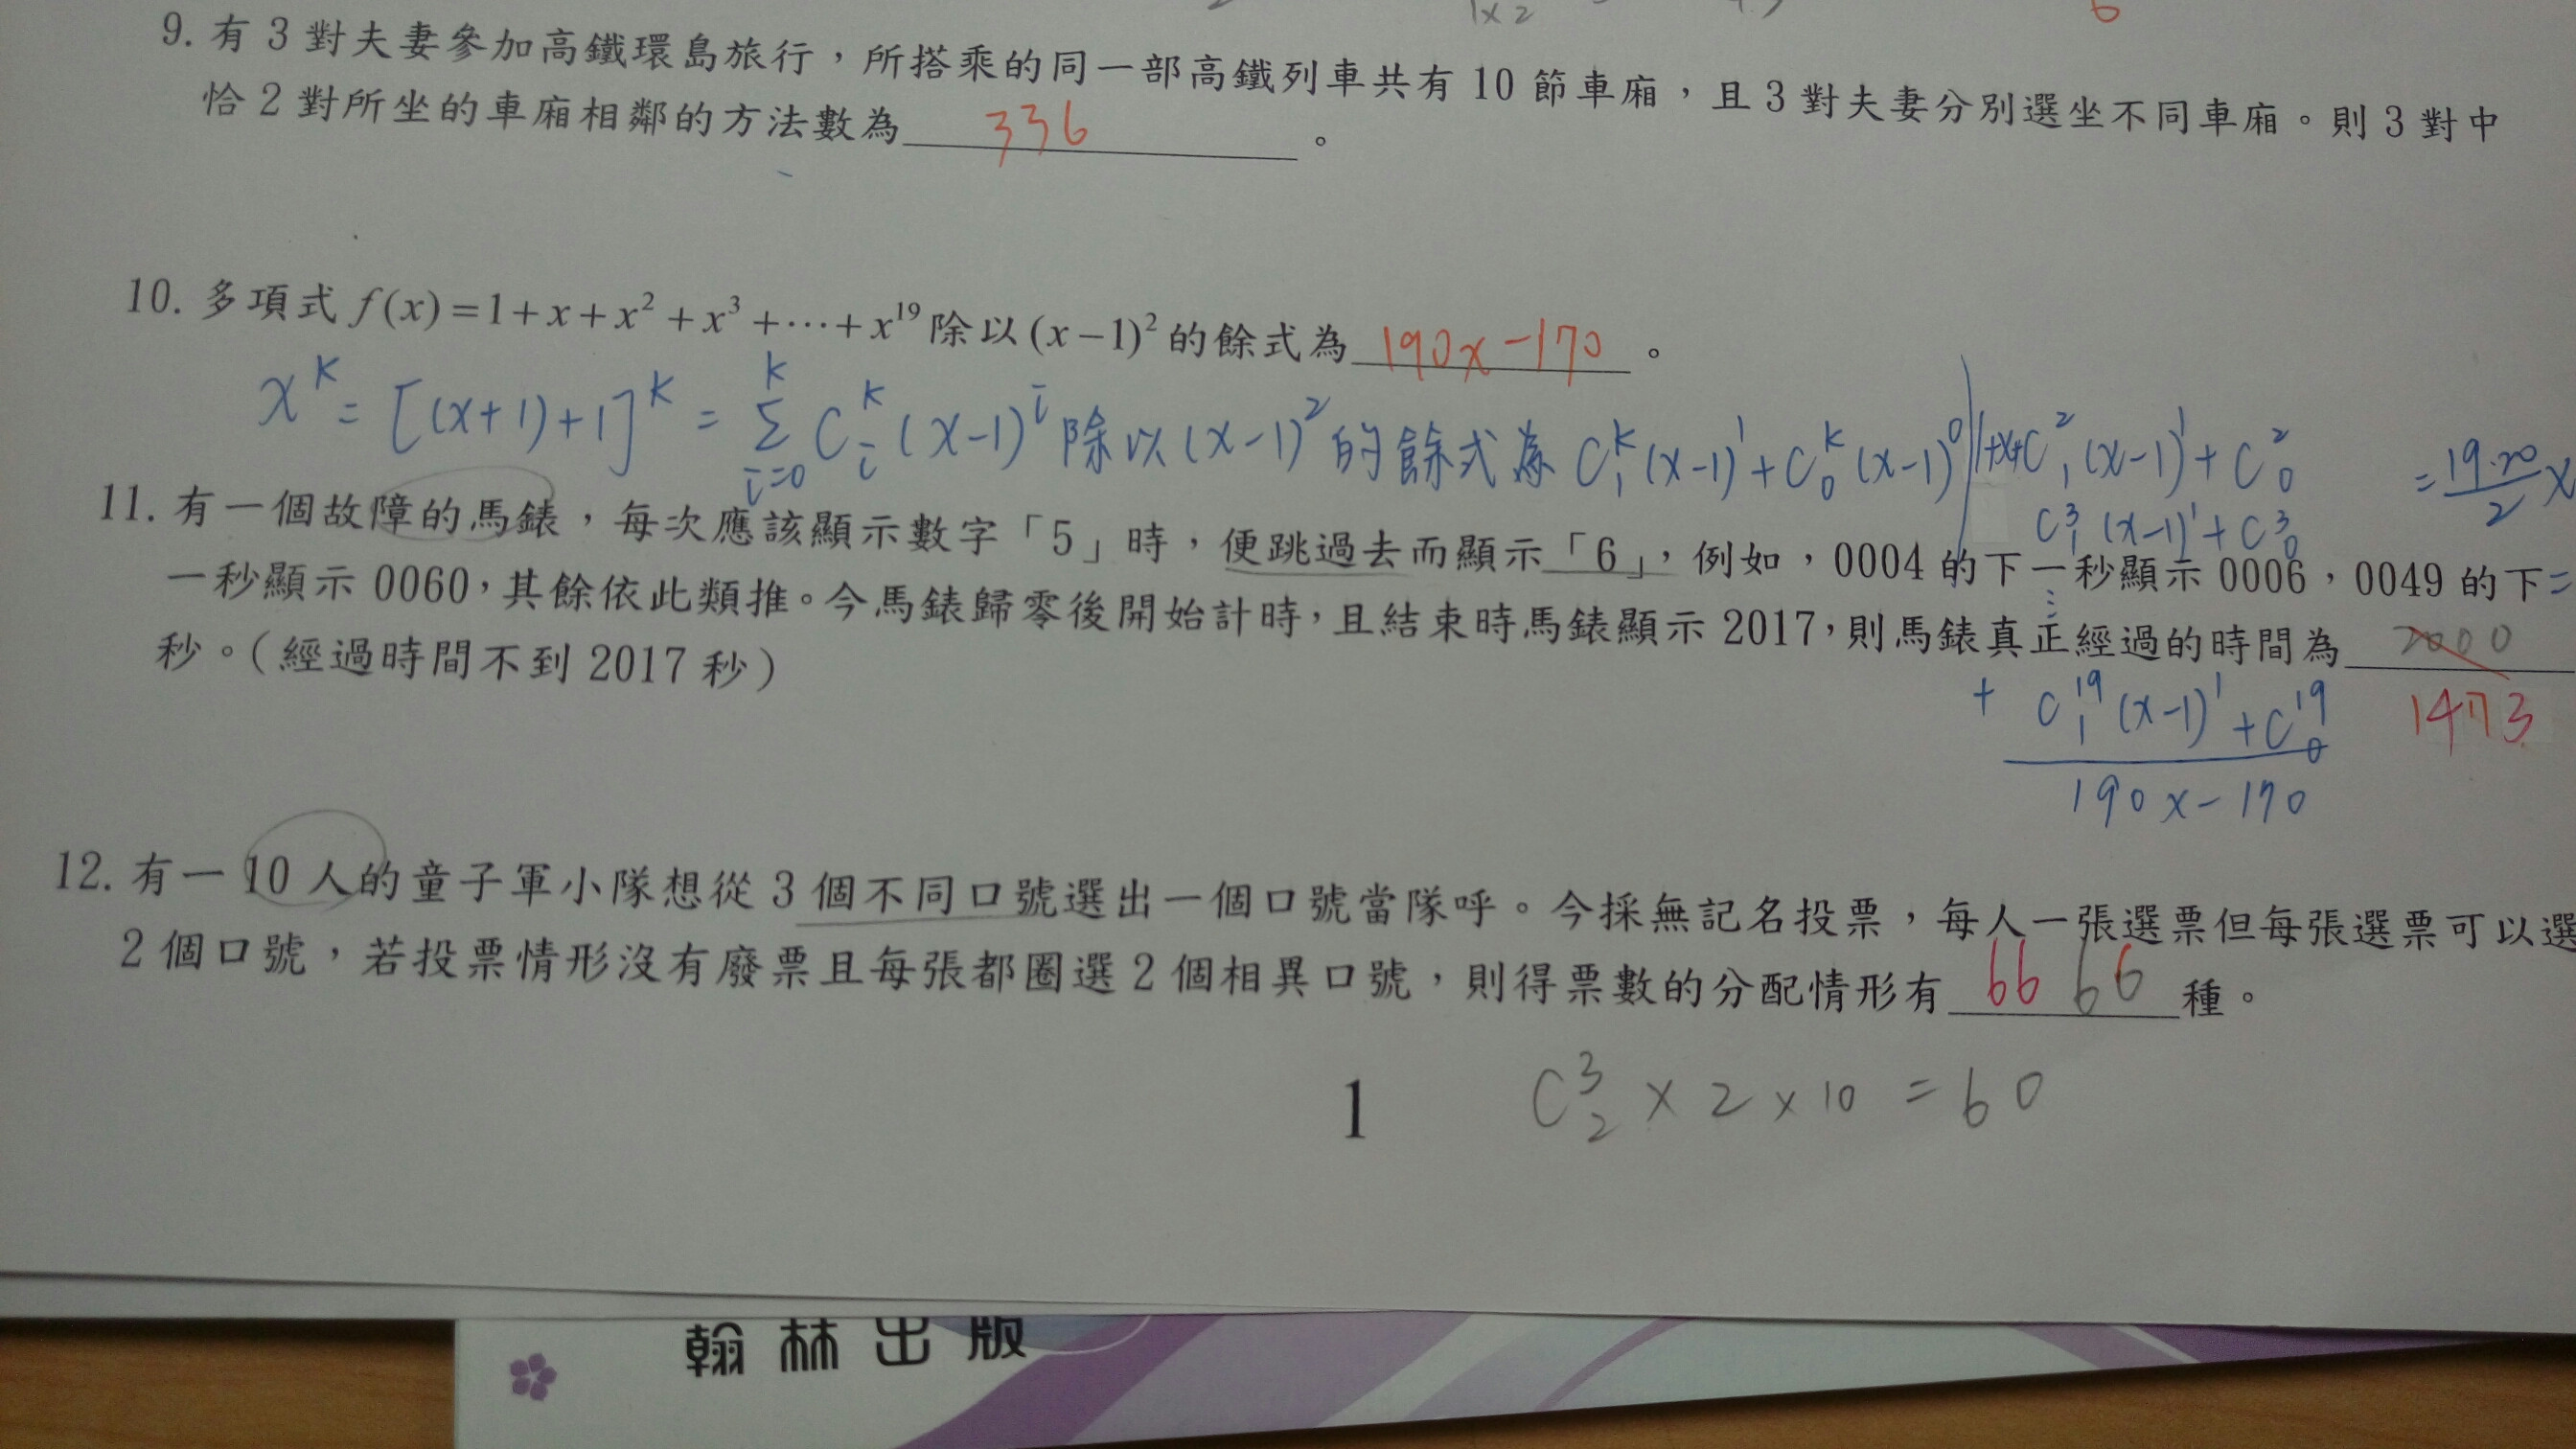 1×2
6
9. 有 3 對夫妻參加高鐵環島旅行，所搭乘的同一部高鐵列車共有 10 節車廂，且 3 對夫妻分別選坐不同車廂。則 3 對中
恰 2 對所坐的車廂相鄰的方法數為 336 。
10. 多項式 f(x)=1+x+x²+x³+⋯+x¹⁹ 除以 (x−1)² 的餘式為 190x−170 。
x^k = [(x+1)+1]^k = Σ_{i=0}^{k} C_i^k (x−1)^i 除以 (x−1)² 的餘式為 C_1^k (x−1)^1 + C_0^k (x−1)^0
1+x+C_1^2 (x−1)^1 + C_0^2
= 19·20/2 x
C_1^3 (x−1)^1 + C_0^3
⋮
+ C_1^19 (x−1)^1 + C_0^19
190x−170
11. 有一個故障的馬錶，每次應該顯示數字「5」時，便跳過去而顯示「6」，例如，0004 的下一秒顯示 0006，0049 的下
一秒顯示 0060，其餘依此類推。今馬錶歸零後開始計時，且結束時馬錶顯示 2017，則馬錶真正經過的時間為 2000
秒。（經過時間不到 2017 秒）
1473
12. 有一 10 人的童子軍小隊想從 3 個不同口號選出一個口號當隊呼。今採無記名投票，每人一張選票但每張選票可以選
2 個口號，若投票情形沒有廢票且每張都圈選 2 個相異口號，則得票數的分配情形有 66 66 種。
1
C_2^3 × 2 × 10 = 60
翰林出版